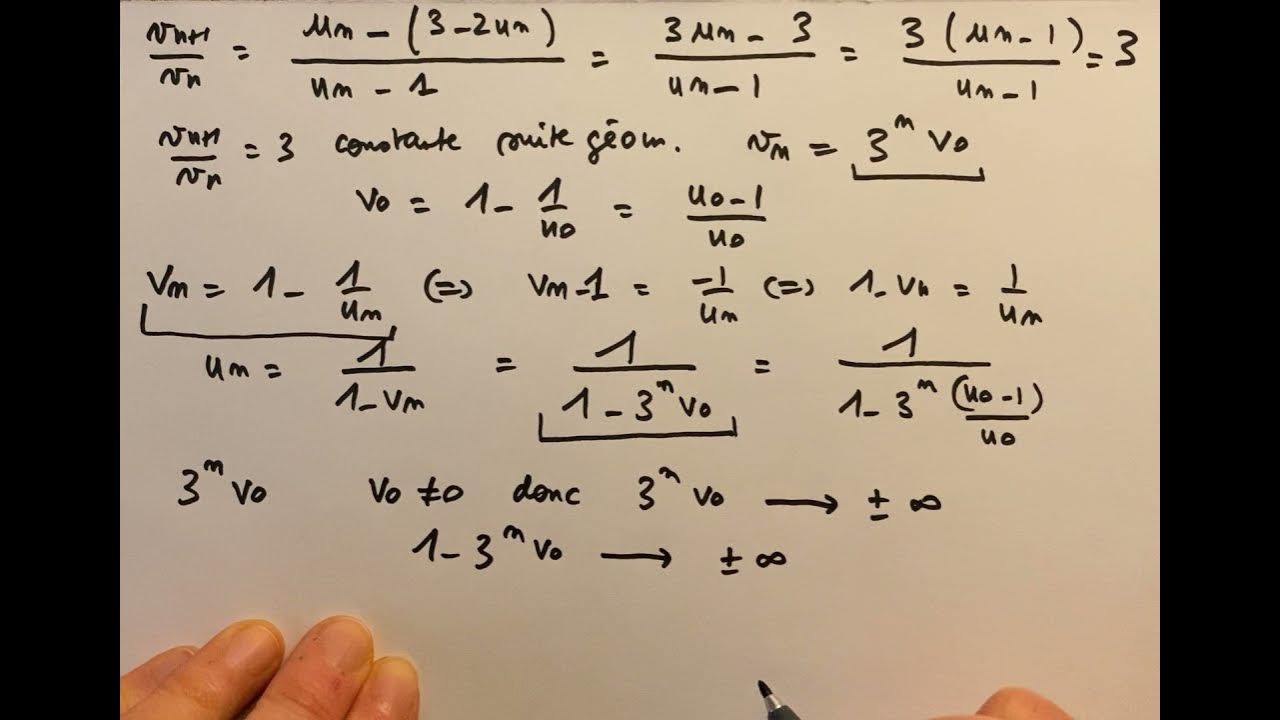 v_{n+1}/v_n = (u_n - (3 - 2u_n))/(u_n - 1) = (3u_n - 3)/(u_n - 1) = 3(u_n - 1)/(u_n - 1) = 3
v_{n+1}/v_n = 3 constante suite géom. v_n = 3^n v_0
v_0 = 1 - 1/u_0 = (u_0 - 1)/u_0
v_n = 1 - 1/u_n (=) v_n - 1 = -1/u_n (=) 1 - v_n = 1/u_n
u_n = 1/(1 - v_n) = 1/(1 - 3^n v_0) = 1/(1 - 3^n (u_0 - 1)/u_0)
3^n v_0 v_0 ≠ 0 donc 3^n v_0 ⟶ ± ∞
1 - 3^n v_0 ⟶ ± ∞